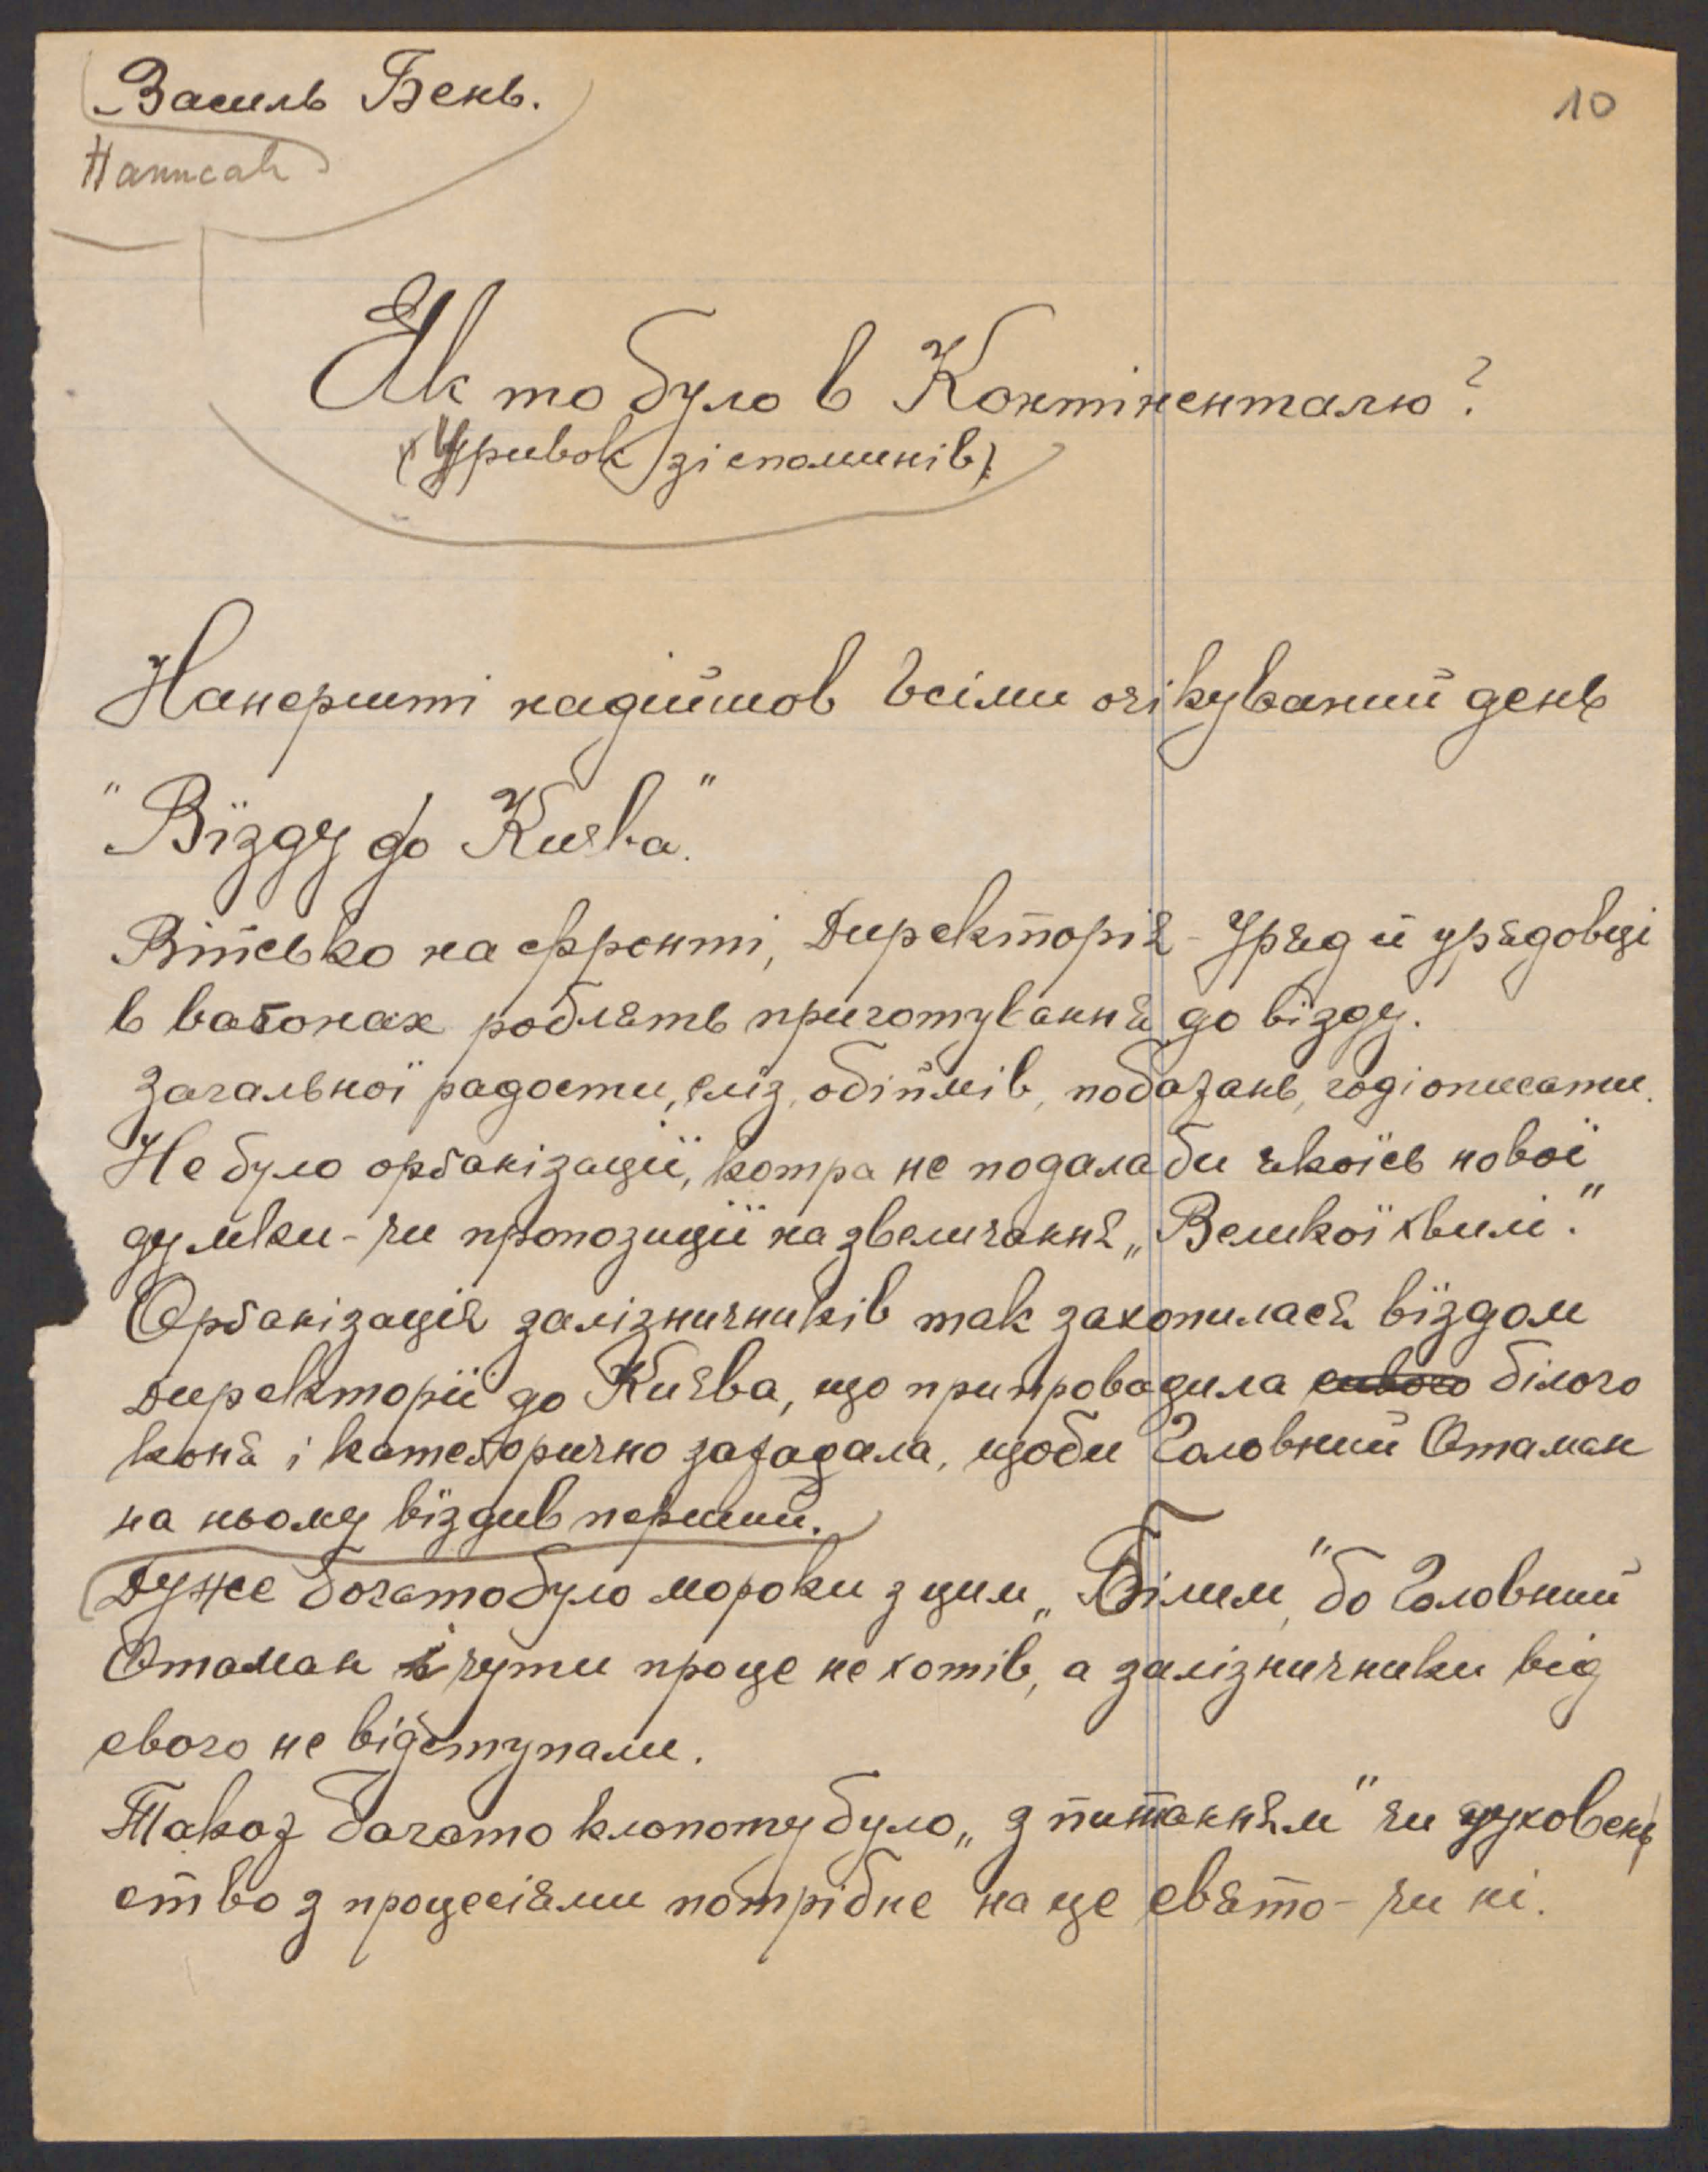 Василь Бень.
10
Написав
Як то було в Контіненталю?
(Уривок зі споминів).
Нанершті надійшов всіми очікуваний день
"Візду до Києва."
Військо на фронті, Директорія - Уряд й урядовці
в ваґонах роблять приготування до візду.
Загальної радости, сліз, обіймів, побажань, годі описати.
Не було орґанізації, котра не подала би якоїсь нової
думки - чи пропозиції на звеличання „Великої хвилі."
Орґанізація залізничників так захопилася віздом
Директорії до Києва, що припровадила сивого білого
коня і катеґорично зажадала, щоби Головний Отаман
на ньому віздив перший.
Дуже богато було мороки з цим „Білим" бо Головний
Отаман і чути про це не хотів, а залізничники від
свого не відступали.
Також багато клопоту було „з питанням" чи духовень
ство з процесіями потрібне на це свято - чи ні.